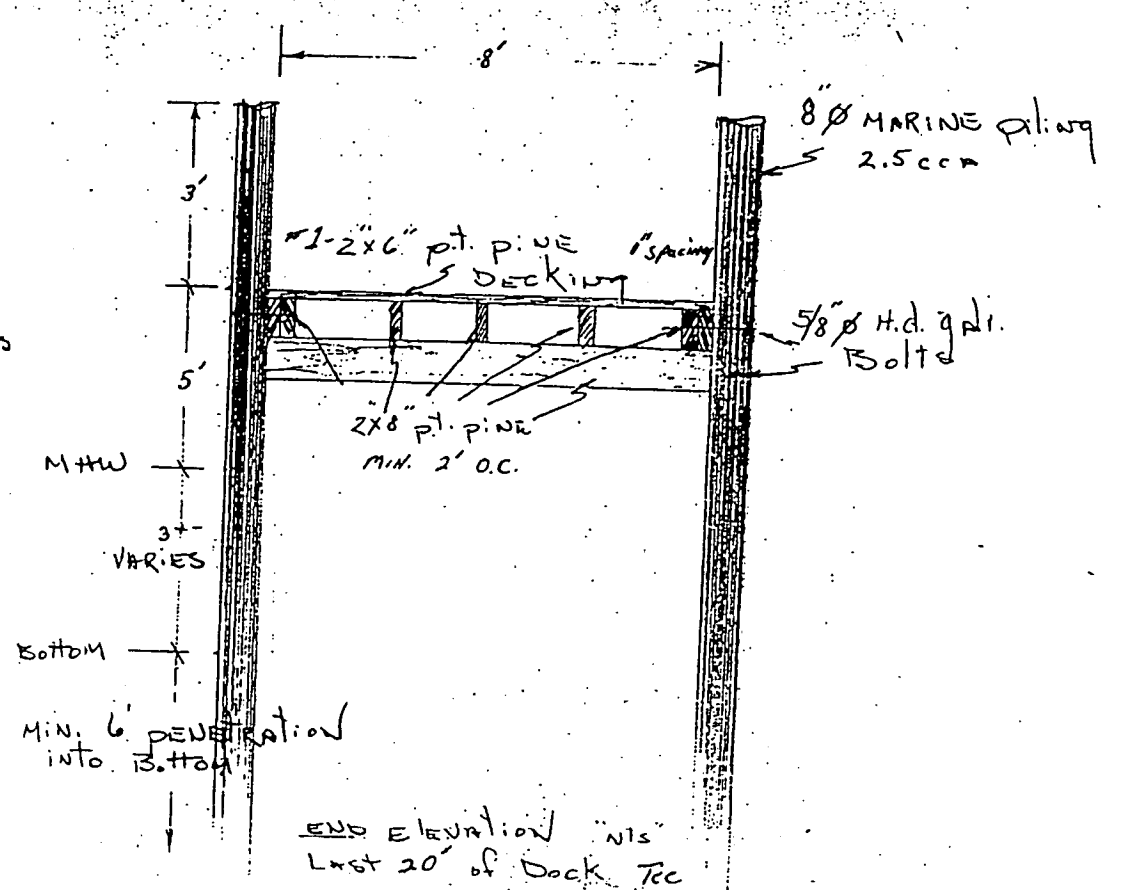 8'
8" Ø MARINE piling
2.5 cca
3'
#1-2"x6" p.t. pine
DECKING
1" spacing
5/8" Ø H.d. galv.
Bolts
5'
2"x8" p.t. pine
MIN. 2' O.C.
MHW
3+-
VARIES
Bottom
MIN. 6' penetration
into Bottom
END Elevation "NTS"
Last 20' of Dock Tee